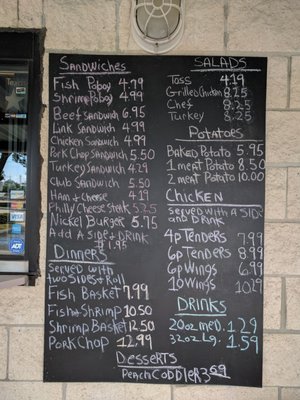 Sandwiches
Fish Poboy 4.79
Shrimp Poboy 4.99
Beef Sandwich 6.95
Link Sandwich 4.99
Chicken Sandwich 4.99
Pork Chop Sandwich 5.50
Turkey Sandwich 4.29
Club Sandwich 5.50
Ham + Cheese 4.19
Philly Cheese Steak 5.25
Nickel Burger 5.75
Add A Side + Drink
$1.95
Dinners
Served with
two Sides + Roll
Fish Basket 7.99
Fish + Shrimp 10.50
Shrimp Basket 12.50
Pork Chop 12.99
Salads
Toss 4.19
Grilled Chicken 8.25
Chef 8.25
Turkey 8.25
Potatoes
Baked Potato 5.95
1 meat Potato 8.50
2 meat Potato 10.00
Chicken
Served with a side
and Drink
4p Tenders 7.99
6p Tenders 8.99
6p Wings 6.99
10 Wings 10.29
Drinks
20oz med. 1.29
32oz Lg. 1.59
Desserts
Peach Coddler 3.59
ADT